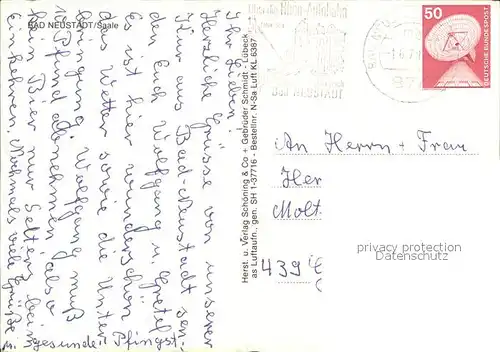 BAD NEUSTADT/Saale
Ihr Lieben!
Herzliche Grüße von unserer
Kur aus Bad-Neustadt sen-
den Euch Wolfgang u. Gretel.
Es ist hier wunderschön
das Wetter sowie die Unter-
bringung. Wolfgang muß
10 Pfund abnehmen, also
kein Bier nur Selters beim
Einkehren. Nochmals viele Grüße
u. gesunde Pfingst.
Herst. u. Verlag Schöning & Co + Gebrüder Schmidt - Lübeck
as Luftaufn., gen. SH 1-37716 - Bestellnr. N-Sa Luft KL 6387
50
DEUTSCHE BUNDESPOST
An Herrn + Frau
Her
Molt
439
privacy protection
Datenschutz